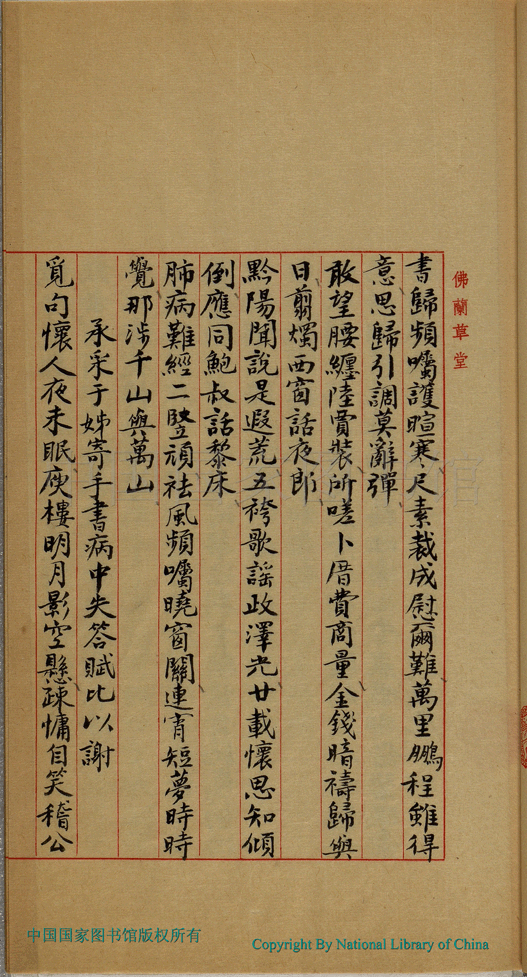 佛蘭草堂
書歸頻囑護暄寒尺素裁成慰爾難萬里鵬程雖得
意思歸引調莫辭彈
敢望腰纏陸賈裝所嗟卜厝費商量金錢暗禱歸與
日翦燭西窗話夜郎
黔陽聞說是遐荒五袴歌謠政澤光廿載懷思知傾
倒應同鮑叔話黎床
肺病難經二豎頑祛風頻囑曉窗關連宵短夢時時
覺那涉千山與萬山
承采于姊寄手書病中失答賦比以謝
覓句懷人夜未眠庾樓明月影空懸疎慵自笑稽公
中国国家图书馆版权所有
Copyright By National Library of China